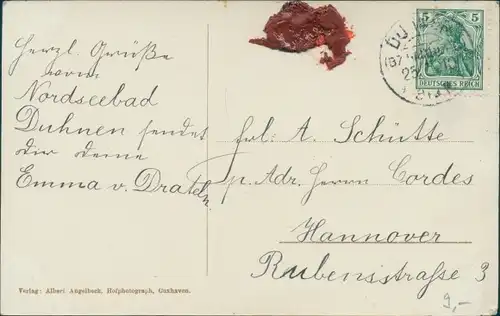 Herzl. Grüße
vom
Nordseebad
Duhnen sendet
dir deine
Emma v. Drateln
5 5
DEUTSCHES REICH
Frl. A. Schütte
p. Adr. Herrn Cordes
Hannover
Rubensstraße 3
9,-
Verlag: Albert Angelbeck, Hofphotograph, Cuxhaven.